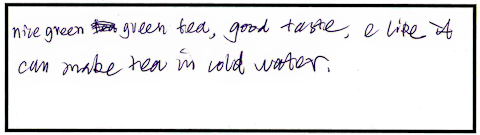 nice green green tea, good taste, e like it
can make tea in cold water.